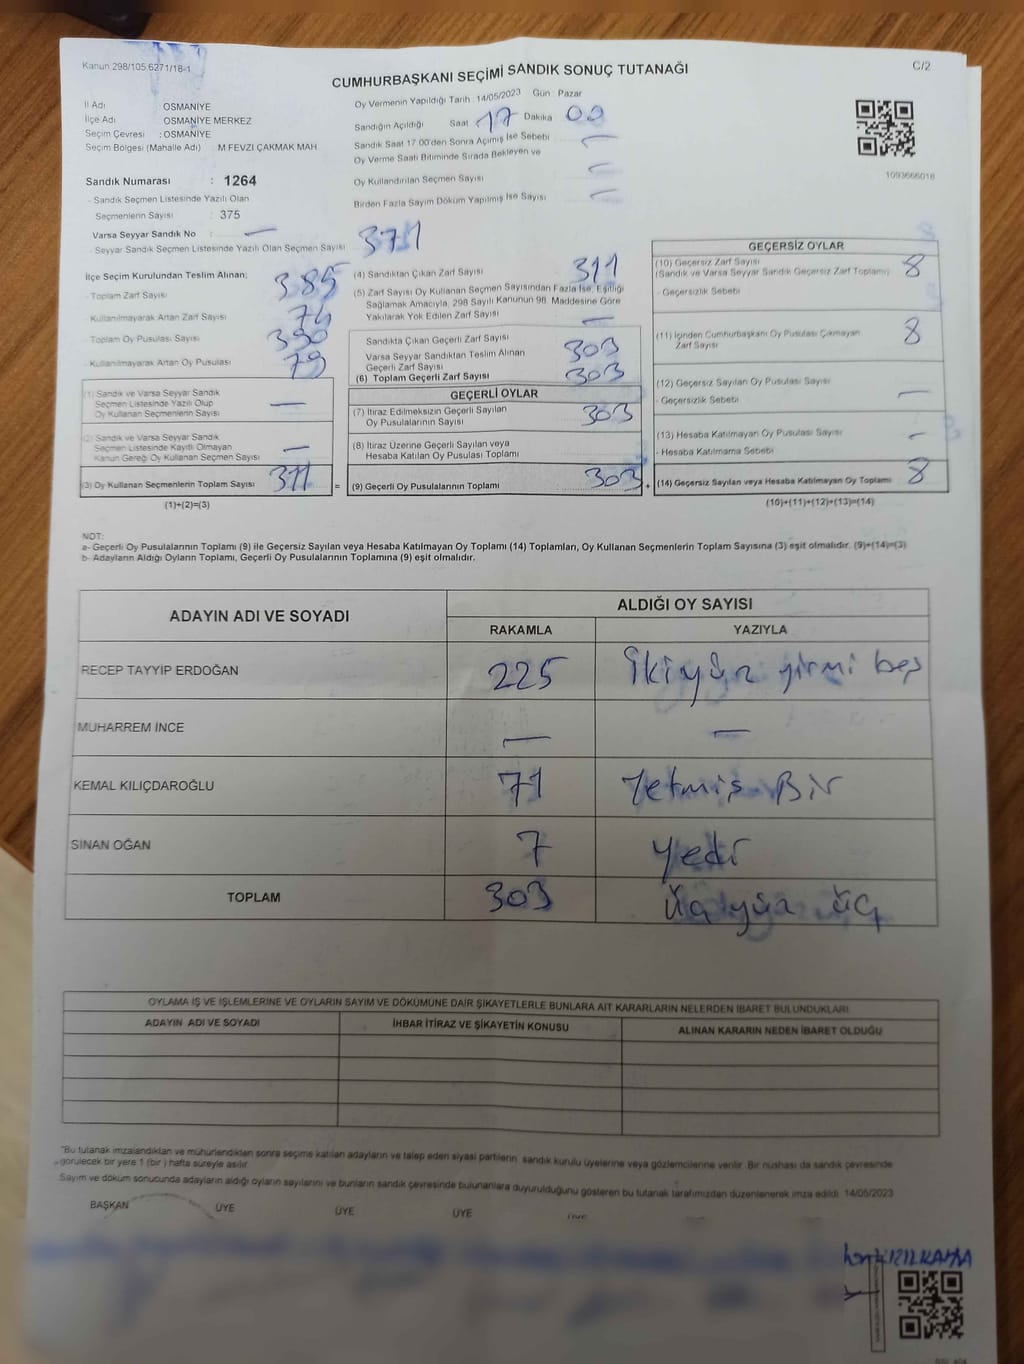 Kanun 298/105.6271/18-1
C/2
CUMHURBAŞKANI SEÇİMİ SANDIK SONUÇ TUTANAĞI
İl Adı OSMANİYE
İlçe Adı OSMANİYE MERKEZ
Seçim Çevresi : OSMANİYE
Seçim Bölgesi (Mahalle Adı) M FEVZİ ÇAKMAK MAH.
Oy Vermenin Yapıldığı Tarih : 14/05/2023 Gün : Pazar
Sandığın Açıldığı Saat 17 Dakika 00
Sandık Saat 17:00'den Sonra Açımış İse Sebebi —
Oy Verme Saati Bitiminde Sırada Bekleyen ve
Oy Kullandırılan Seçmen Sayısı —
Birden Fazla Sayım Döküm Yapılmış İse Sayısı —
1093666018
Sandık Numarası : 1264
- Sandık Seçmen Listesinde Yazılı Olan
Seçmenlerin Sayısı : 375
Varsa Seyyar Sandık No : —
- Seyyar Sandık Seçmen Listesinde Yazılı Olan Seçmen Sayısı 371
İlçe Seçim Kurulundan Teslim Alınan;
- Toplam Zarf Sayısı 385
- Kullanılmayarak Artan Zarf Sayısı 74
- Toplam Oy Pusulası Sayısı 390
- Kullanılmayarak Artan Oy Pusulası 79
(1) Sandık ve Varsa Seyyar Sandık
Seçmen Listesinde Yazılı Olup
Oy Kullanan Seçmenlerin Sayısı —
(2) Sandık ve Varsa Seyyar Sandık
Seçmen Listesinde Kayıtlı Olmayan
Kanun Gereği Oy Kullanan Seçmen Sayısı —
(3) Oy Kullanan Seçmenlerin Toplam Sayısı 311
(1)+(2)=(3)
(4) Sandıktan Çıkan Zarf Sayısı 311
(5) Zarf Sayısı Oy Kullanan Seçmen Sayısından Fazla İse, Eşitliği
Sağlamak Amacıyla, 298 Sayılı Kanunun 98. Maddesine Göre
Yakılarak Yok Edilen Zarf Sayısı —
Sandıkta Çıkan Geçerli Zarf Sayısı 303
Varsa Seyyar Sandıktan Teslim Alınan
Geçerli Zarf Sayısı
(6) Toplam Geçerli Zarf Sayısı 303
GEÇERLİ OYLAR
(7) İtiraz Edilmeksizin Geçerli Sayılan
Oy Pusulalarının Sayısı 303
(8) İtiraz Üzerine Geçerli Sayılan veya
Hesaba Katılan Oy Pusulası Toplamı
= (9) Geçerli Oy Pusulalarının Toplamı 303 +
GEÇERSİZ OYLAR
(10) Geçersiz Zarf Sayısı 8
(Sandık ve Varsa Seyyar Sandık Geçersiz Zarf Toplamı)
- Geçersizlik Sebebi
(11) İçinden Cumhurbaşkanı Oy Pusulası Çıkmayan
Zarf Sayısı 8
(12) Geçersiz Sayılan Oy Pusulası Sayısı
- Geçersizlik Sebebi —
(13) Hesaba Katılmayan Oy Pusulası Sayısı —
- Hesaba Katılmama Sebebi
(14) Geçersiz Sayılan veya Hesaba Katılmayan Oy Toplamı 8
(10)+(11)+(12)+(13)=(14)
NOT:
a- Geçerli Oy Pusulalarının Toplamı (9) ile Geçersiz Sayılan veya Hesaba Katılmayan Oy Toplamı (14) Toplamları, Oy Kullanan Seçmenlerin Toplam Sayısına (3) eşit olmalıdır. (9)+(14)=(3)
b- Adayların Aldığı Oyların Toplamı, Geçerli Oy Pusulalarının Toplamına (9) eşit olmalıdır.
ADAYIN ADI VE SOYADI ALDIĞI OY SAYISI
RAKAMLA YAZIYLA
RECEP TAYYİP ERDOĞAN 225 İkiyüz yirmi beş
MUHARREM İNCE — —
KEMAL KILIÇDAROĞLU 71 Yetmiş Bir
SİNAN OĞAN 7 Yedi
TOPLAM 303 Üçyüz üç
OYLAMA İŞ VE İŞLEMLERİNE VE OYLARIN SAYIM VE DÖKÜMÜNE DAİR ŞİKAYETLERLE BUNLARA AİT KARARLARIN NELERDEN İBARET BULUNDUKLARI
ADAYIN ADI VE SOYADI İHBAR İTİRAZ VE ŞİKAYETİN KONUSU ALINAN KARARIN NEDEN İBARET OLDUĞU
"Bu tutanak imzalandıktan ve mühürlendikten sonra seçime katılan adayların ve talep eden siyasi partilerin sandık kurulu üyelerine veya gözlemcilerine verilir. Bir nüshası da sandık çevresinde
görülecek bir yere 1 (bir ) hafta süreyle asılır.
Sayım ve döküm sonucunda adayların aldığı oyların sayılarını ve bunların sandık çevresinde bulunanlara duyurulduğunu gösteren bu tutanak tarafımızdan düzenlenerek imza edildi. 14/05/2023
BAŞKAN ÜYE ÜYE ÜYE ÜYE